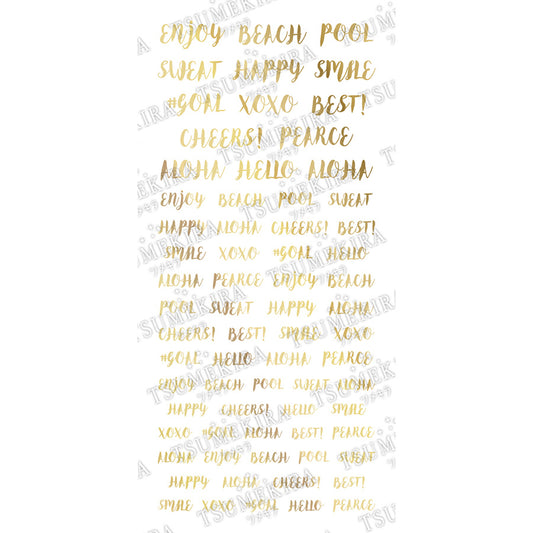 ENJOY BEACH POOL
SWEAT HAPPY SMILE
#GOAL XOXO BEST!
CHEERS! PEARCE
ALOHA HELLO ALOHA
ENJOY BEACH POOL SWEAT
HAPPY ALOHA CHEERS! BEST!
SMILE XOXO #GOAL HELLO
ALOHA PEARCE ENJOY BEACH
POOL SWEAT HAPPY ALOHA
CHEERS! BEST! SMILE XOXO
#GOAL HELLO ALOHA PEARCE
ENJOY BEACH POOL SWEAT ALOHA
HAPPY CHEERS! HELLO SMILE
XOXO #GOAL ALOHA BEST! PEARCE
ALOHA ENJOY BEACH POOL SWEAT
HAPPY ALOHA CHEERS! BEST!
SMILE XOXO #GOAL HELLO PEARCE
TSUMEKIRA
ツメキラ